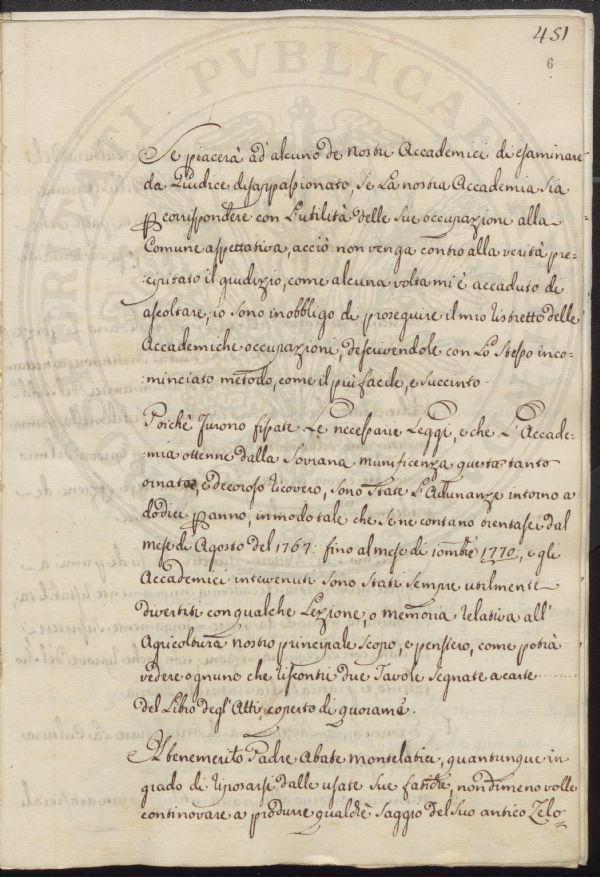 451
6
Se piacerà ad alcuno de nostri Accademici di esaminare
da Giudice disappassionato, se La nostra Accademia sia
p corrispondere con L'utilità delle sue occupazioni alla
Comune aspettativa, acciò non venga contro alla verità pre=
:cipitato il giudizio, come alcuna volta mi è accaduto di
ascoltare, io sono in obbligo di proseguire il mio ristretto delle
Accademiche occupazioni, descrivendole con Lo stesso inco=
:minciato metodo, come il più facile, e succinto.
Poichè furono fissate Le necessarie Leggi, e che L'Accade=
:mia ottenne dalla Sovrana munificenza questo tanto
ornato, e decoroso ricovero, sono state L'Adunanze intorno a
dodici p anno, in modo tale che se ne contano trentasei dal
mese di Agosto del 1767: fino al mese di 10mbre 1770, e gli
Accademici intervenuti sono stati sempre utilmente
divertiti con qualche Lezione, o memoria relativa all'
Agricoltura nostro principale scopo, e pensiero, come potrà
vedere ognuno che riscontri due Tavole segnate a carte ........
del Libro degl'Atti, coperto di quoiame.
Al benemerito Padre Abate Montelatici, quantunque in
grado di riposarsi dalle usate sue fatiche, non dimeno volle
continovare a produrre qualche saggio del suo antico Zelo=
PVBLICAE